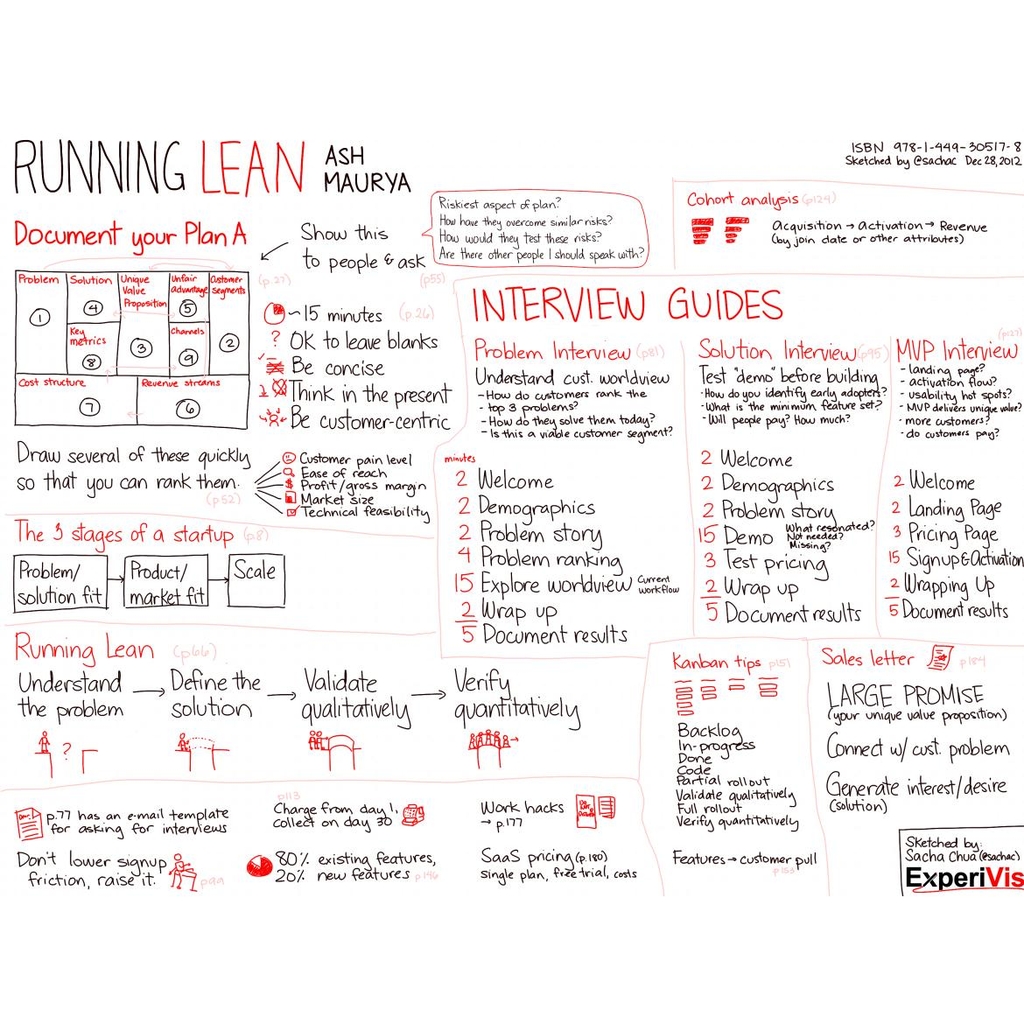 RUNNING LEAN ASH
MAURYA
ISBN 978-1-449-30517-8
Sketched by @sachac Dec 28, 2012
Document your Plan A
Show this
to people & ask
(p.27)
(p55)
Riskiest aspect of plan?
How have they overcome similar risks?
How would they test these risks?
Are there other people I should speak with?
Problem
1
Solution
4
Key
metrics
8
Unique
Value
Proposition
3
Unfair
advantage
5
Channels
9
Customer
segments
2
Cost structure
7
Revenue streams
6
~15 minutes (p.26)
? OK to leave blanks
Be concise
Think in the present
Be customer-centric
Draw several of these quickly
so that you can rank them.
(p.52)
Customer pain level
Ease of reach
$ Profit/gross margin
Market size
Technical feasibility
The 3 stages of a startup (p.8)
Problem/
solution fit
Product/
market fit
Scale
Cohort analysis (p124)
Acquisition → Activation → Revenue
(by join date or other attributes)
INTERVIEW GUIDES
Problem Interview (p81)
Understand cust. worldview
- How do customers rank the
- top 3 problems?
- How do they solve them today?
- Is this a viable customer segment?
minutes
2 Welcome
2 Demographics
2 Problem story
4 Problem ranking
15 Explore worldview Current
workflow
2 Wrap up
5 Document results
Solution Interview (p95)
Test "demo" before building
- How do you identify early adopters?
- What is the minimum feature set?
- Will people pay? How much?
2 Welcome
2 Demographics
2 Problem story
15 Demo What resonated?
Not needed?
Missing?
3 Test pricing
2 Wrap up
5 Document results
MVP Interview
- landing page?
- activation flow?
- usability hot spots?
- MVP delivers unique value?
- more customers?
- do customers pay?
2 Welcome
2 Landing Page
3 Pricing Page
15 Signup & Activation
2 Wrapping Up
5 Document results
Running Lean (p66)
Understand
the problem
→ Define the
solution
→ Validate
qualitatively
→ Verify
quantitatively
?
p.77 has an e-mail template
for asking for interviews
p113
Charge from day 1,
collect on day 30
Work hacks
→ p.177
Don't lower signup
friction, raise it.
80% existing features,
20% new features p146
SaaS pricing (p.180)
single plan, free trial, costs
Kanban tips p151
Backlog
In-progress
Done
Code
Partial rollout
Validate qualitatively
Full rollout
Verify quantitatively
Features → customer pull
Sales letter p184
LARGE PROMISE
(your unique value proposition)
Connect w/ cust. problem
Generate interest/desire
(solution)
Sketched by:
Sacha Chua (@sachac)
ExperiVis